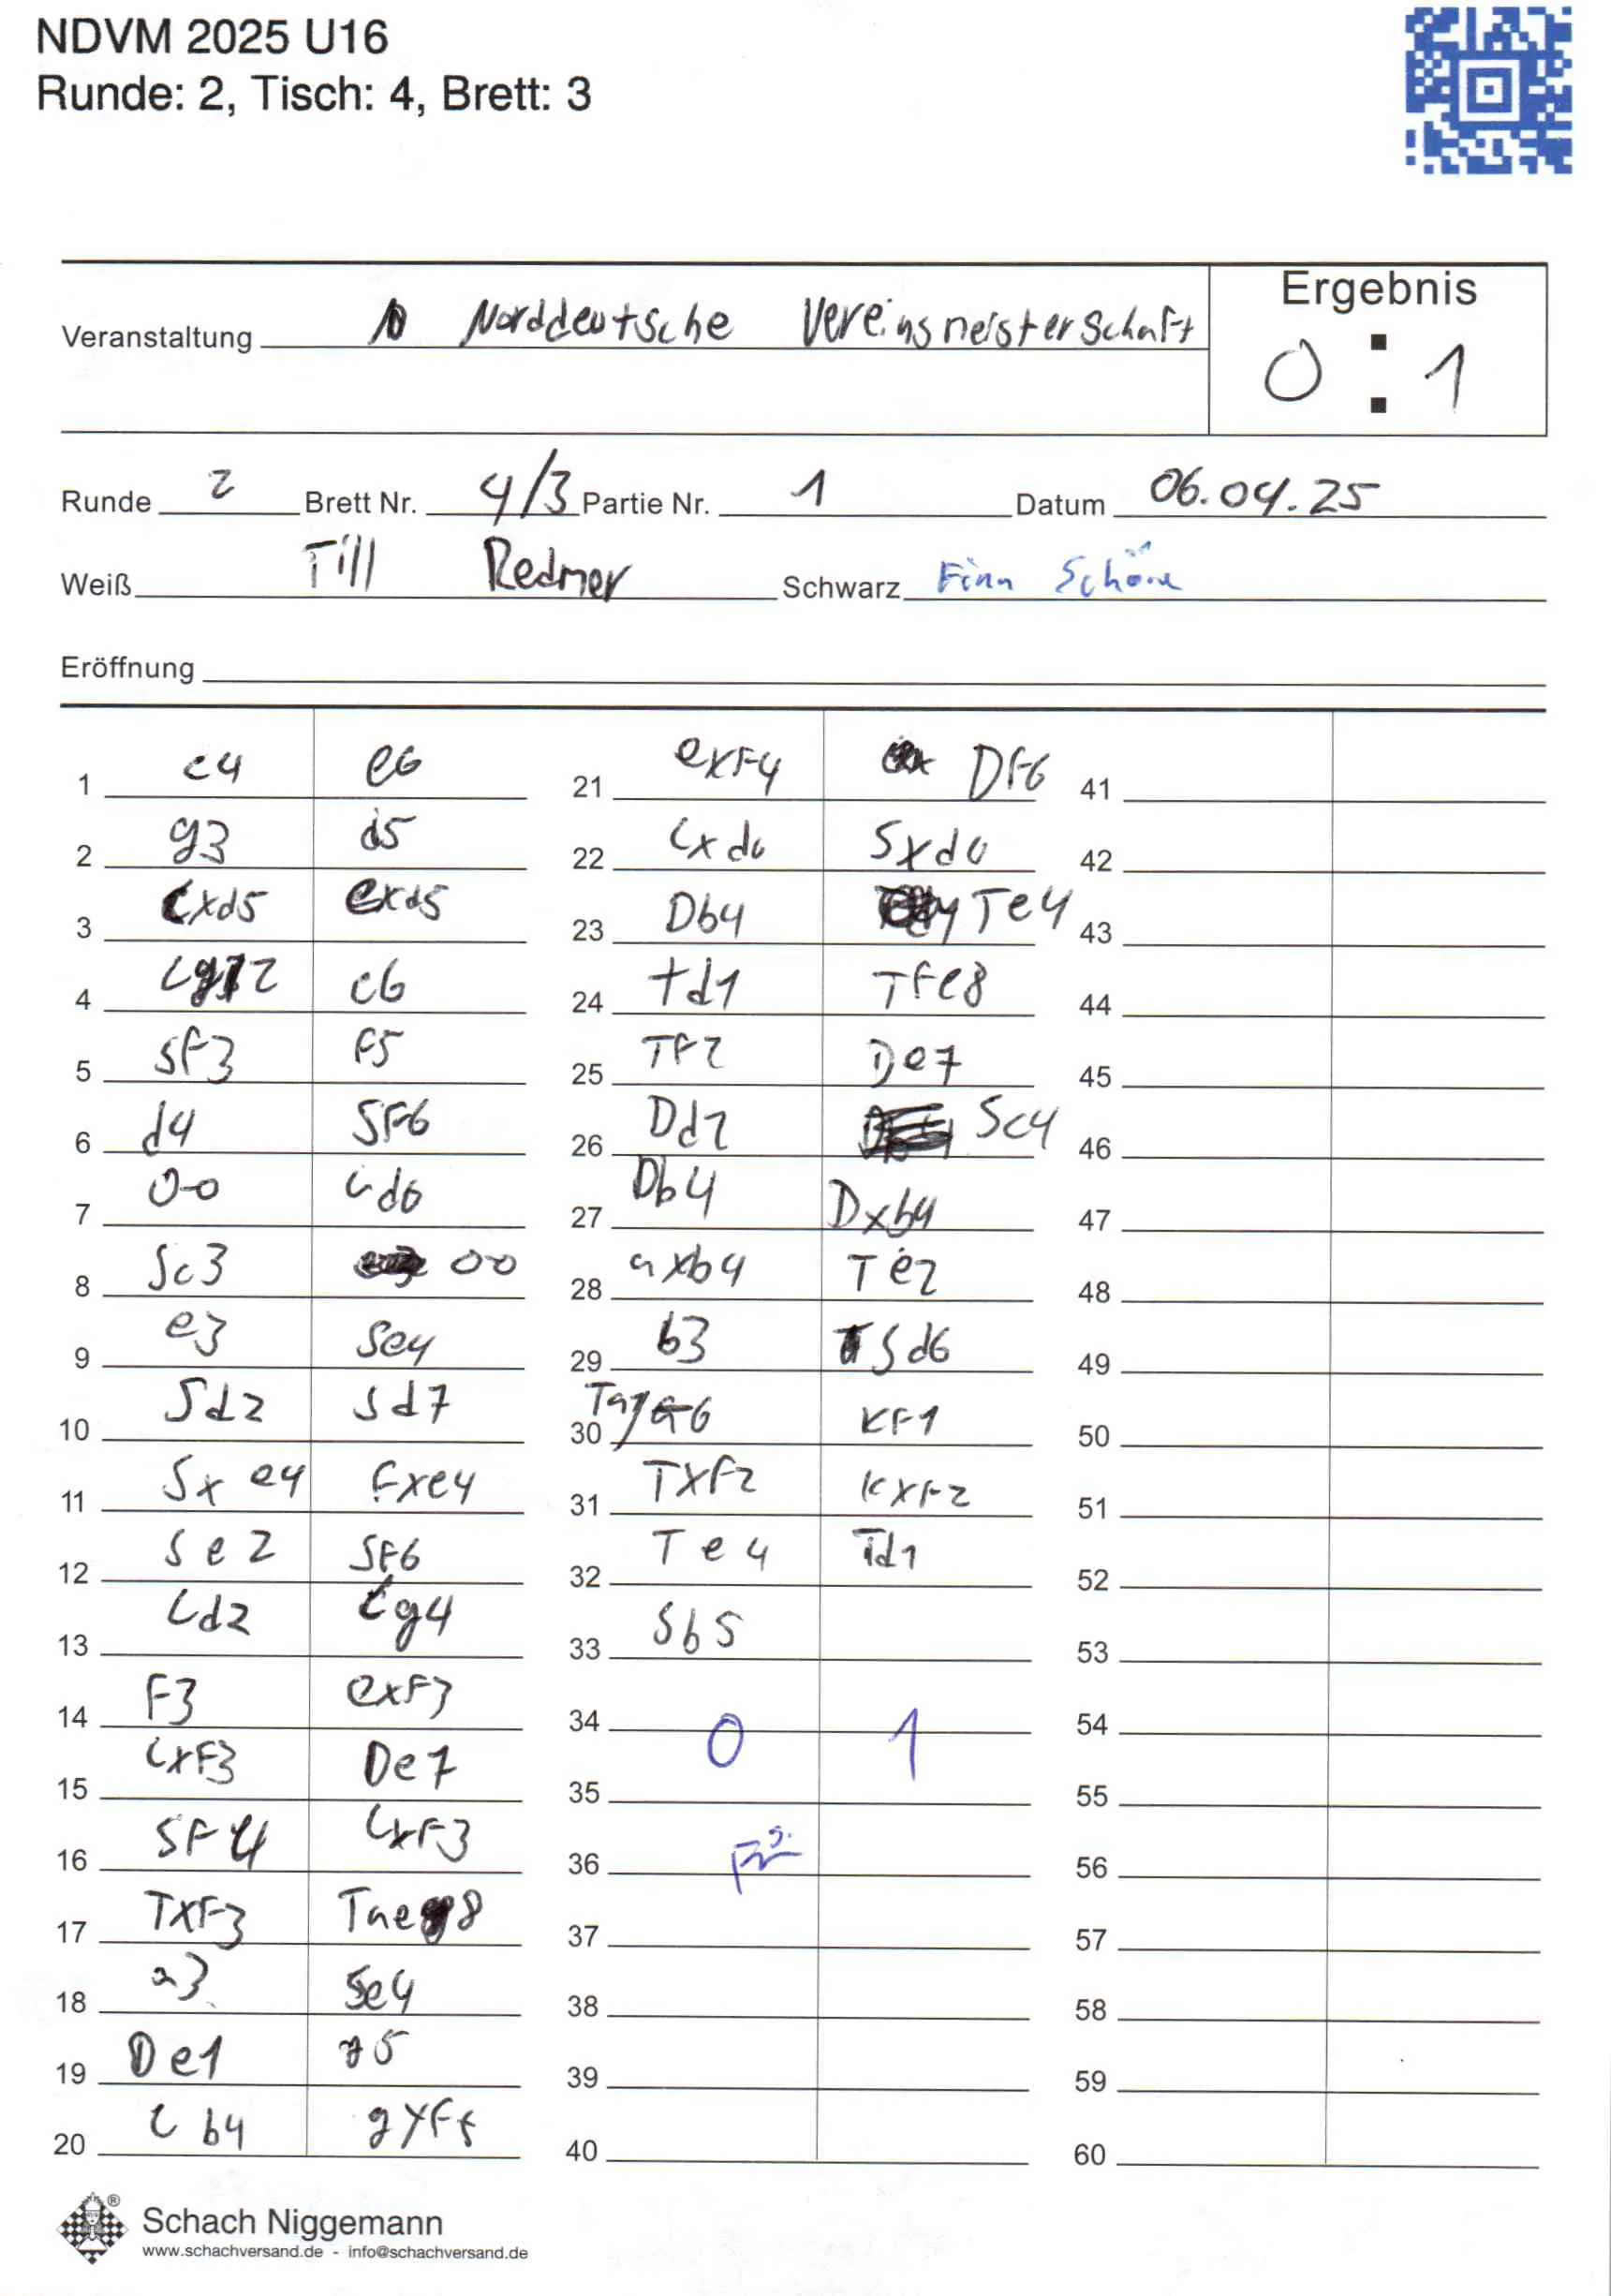 NDVM 2025 U16
Runde: 2, Tisch: 4, Brett: 3
Ergebnis
Veranstaltung Norddeutsche Vereinsmeisterschaft
0 : 1
Runde 2 Brett Nr. 4/3 Partie Nr. 1 Datum 06.04.25
Weiß Till Redmer Schwarz Finn Schöne
Eröffnung
1 c4 e6
2 g3 d5
3 cxd5 exd5
4 Lg2 c6
5 Sf3 F5
6 d4 SF6
7 0-0 Ld6
8 Sc3 00
9 e3 Se4
10 Sd2 Sd7
11 Sxe4 Fxe4
12 Se2 SF6
13 Ld2 Lg4
14 F3 exF3
15 LxF3 De7
16 SF4 LxF3
17 TxF3 Tae8
18 a3 Se4
19 De1 g5
20 Lb4 gxF4
21 exF4 DF6
22 Lxd6 Sxd6
23 Db4 Te4
24 td1 Tfe8
25 TF2 De7
26 Dd2 Sc4
27 Db4 Dxb4
28 axb4 Te2
29 b3 Sd6
30 KF1
31 TxF2 KxF2
32 Te4 Td1
33 Sb5
34 0 1
35
36
37
38
39
40
41
42
43
44
45
46
47
48
49
50
51
52
53
54
55
56
57
58
59
60
Schach Niggemann
www.schachversand.de - info@schachversand.de